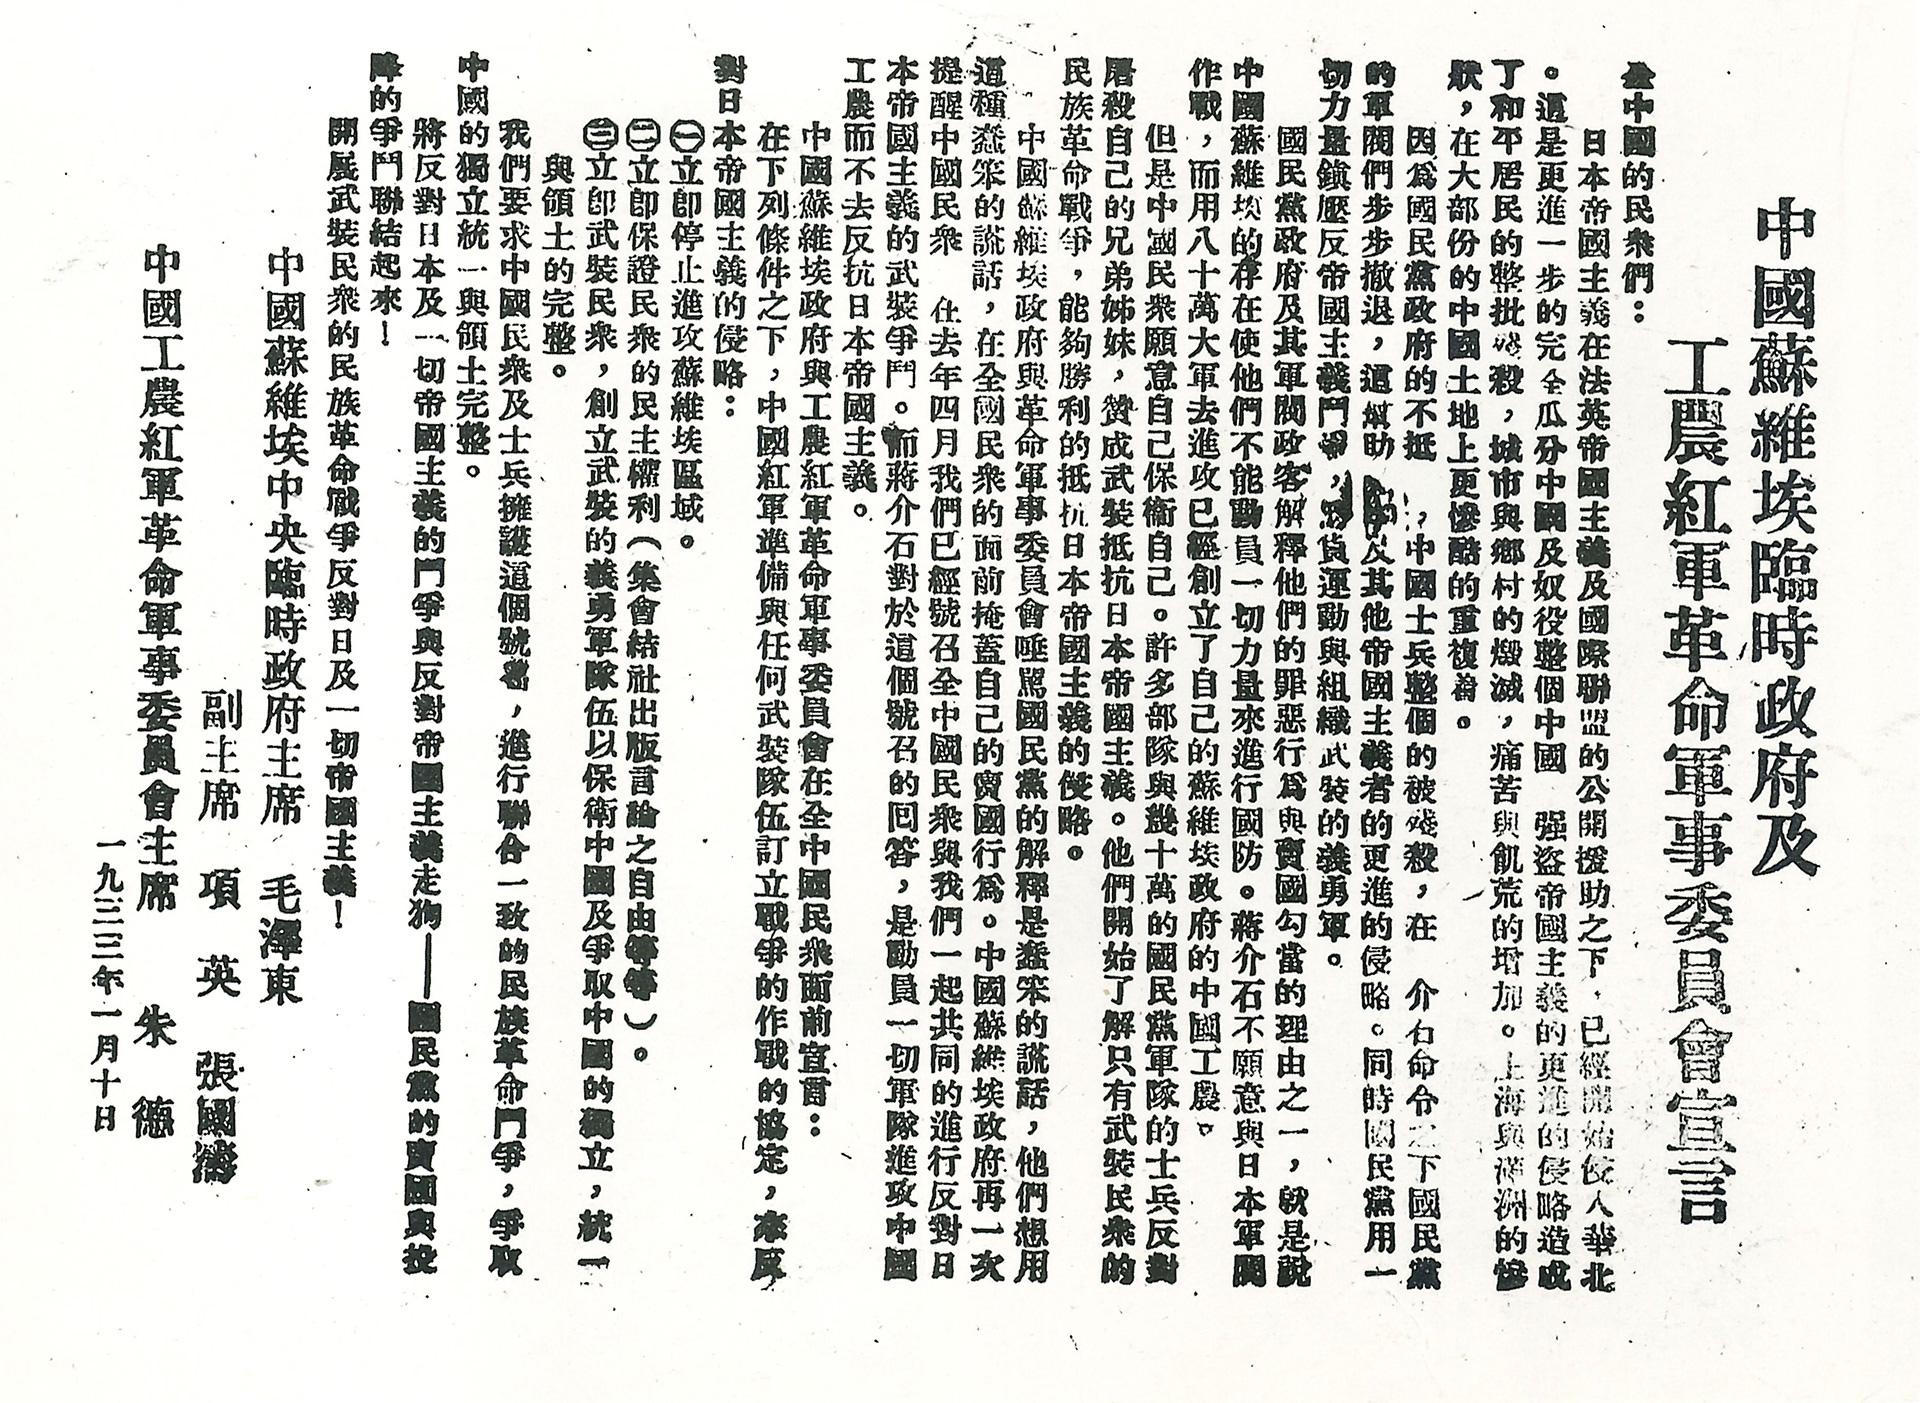 中國蘇維埃臨時政府及
工農紅軍革命軍事委員會宣言
全中國的民衆們：
日本帝國主義在法英帝國主義及國際聯盟的公開援助之下，已經開始侵入華北
。這是更進一步的完全瓜分中國及奴役整個中國　强盜帝國主義的更進的侵略造成
了和平居民的整批殘殺，城市與鄉村的燬滅，痛苦與飢荒的增加。上海與滿洲的慘
狀，在大部份的中國土地上更慘酷的重複着。
因爲國民黨政府的不抵　，中國士兵整個的被殘殺，在　介石命令之下國民黨
的軍閥們步步撤退，這幫助　及其他帝國主義者的更進的侵略。同時國民黨用一
切力量鎮壓反帝國主義鬥爭，　貨運動與組織武裝的義勇軍。
國民黨政府及其軍閥政客解釋他們的罪惡行爲與賣國勾當的理由之一，就是說
中國蘇維埃的存在使他們不能動員一切力量來進行國防。蔣介石不願意與日本軍閥
作戰，而用八十萬大軍去進攻已經創立了自己的蘇維埃政府的中國工農。
但是中國民衆願意自己保衞自己。許多部隊與幾十萬的國民黨軍隊的士兵反對
屠殺自己的兄弟姊妹，贊成武裝抵抗日本帝國主義。他們開始了解只有武裝民衆的
民族革命戰爭，能夠勝利的抵抗日本帝國主義的侵略。
中國蘇維埃政府與革命軍事委員會唾駡國民黨的解釋是蠢笨的謊話，他們想用
這種蠢笨的謊話，在全國民衆的面前掩蓋自己的賣國行爲。中國蘇維埃政府再一次
提醒中國民衆　在去年四月我們已經號召全中國民衆與我們一起共同的進行反對日
本帝國主義的武裝爭鬥。而蔣介石對於這個號召的回答，是動員一切軍隊進攻中國
工農而不去反抗日本帝國主義。
中國蘇維埃政府與工農紅軍革命軍事委員會在全中國民衆面前宣言：
在下列條件之下，中國紅軍準備與任何武裝隊伍訂立戰爭的作戰的協定，來反
對日本帝國主義的侵略：
㊀立即停止進攻蘇維埃區域。
㊁立即保證民衆的民主權利（集會結社出版言論之自由等等）。
㊂立即武裝民衆，創立武裝的義勇軍隊伍以保衛中國及爭取中國的獨立，統一
與領土的完整。
我們要求中國民衆及士兵擁護這個號召，進行聯合一致的民族革命鬥爭，爭取
中國的獨立統一與領土完整。
將反對日本及一切帝國主義的鬥爭與反對帝國主義走狗——國民黨的賣國與投
降的爭鬥聯結起來！
開展武裝民衆的民族革命戰爭反對日及一切帝國主義！
中國蘇維埃中央臨時政府主席　毛澤東
副主席　項　英　張國燾
中國工農紅軍革命軍事委員會主席　朱　德
一九三三年一月十日